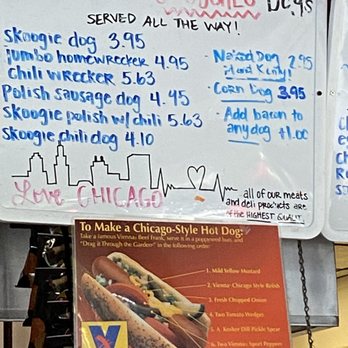 Dogs
SERVED ALL THE WAY!
Skoogie dog 3.95
jumbo homewrecker 4.95
chili wrecker 5.63
Polish sausage dog 4.45
Skoogie polish w/ chili 5.63
Skoogie chili dog 4.10
- Naked Dog 2.95
- Corn Dog 3.95
- Add bacon to
any dog +1.00
Love CHICAGO
all of our meats
and deli products are
of the HIGHEST QUALITY
To Make a Chicago-Style Hot Dog:
Take a famous Vienna Beef Frank, serve it in a poppyseed bun, and
"Drag it Through the Garden" in the following order:
1. Mild Yellow Mustard
2. Vienna Chicago Style Relish
3. Fresh Chopped Onion
4. Two Tomato Wedges
5. A Kosher Dill Pickle Spear
6. Two Vienna Sport Peppers
V